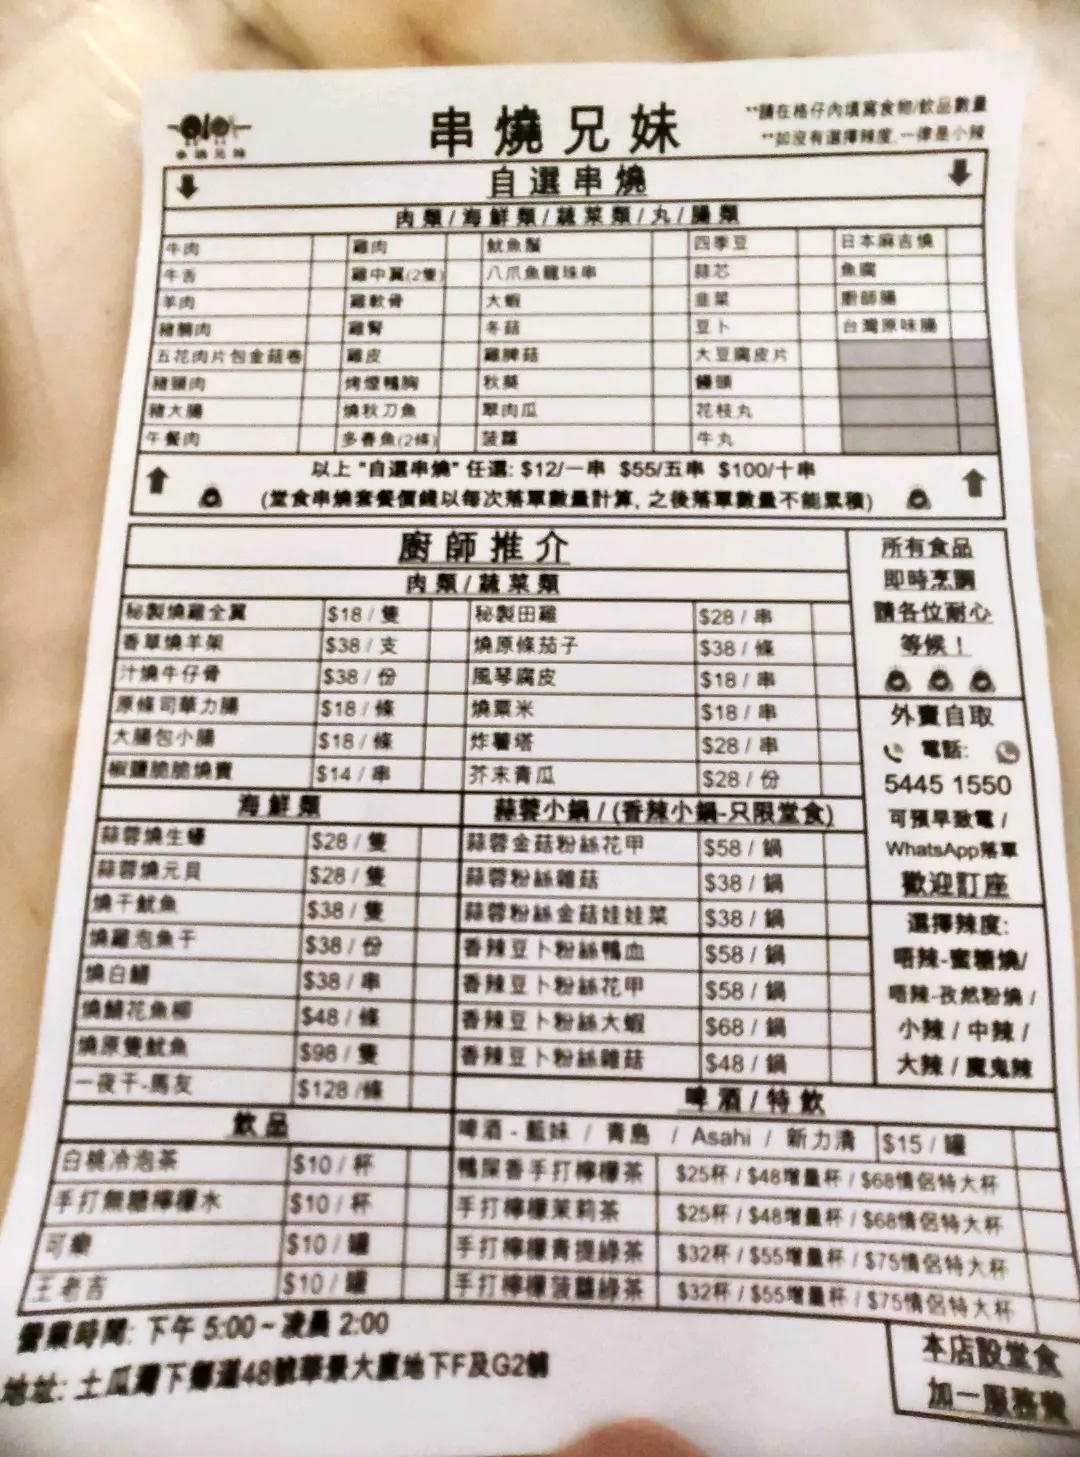 串燒兄妹
串燒兄妹
**請在格仔內填寫食物/飲品數量
**如沒有選擇辣度,一律是小辣
自選串燒
肉類/海鮮類/蔬菜類/丸/腸類
牛肉 雞肉 魷魚鬚 四季豆 日本麻吉燒
牛舌 雞中翼(2隻) 八爪魚龍珠串 蒜芯 魚腐
羊肉 雞軟骨 大蝦 韭菜 廚師腸
豬腩肉 雞腎 冬菇 豆卜 台灣原味腸
五花肉片包金菇卷 雞皮 雞脾菇 大豆腐皮片
豬頸肉 烤煙鴨胸 秋葵 饅頭
豬大腸 燒秋刀魚 翠肉瓜 花枝丸
午餐肉 多春魚(2條) 菠蘿 牛丸
以上 "自選串燒" 任選: $12/一串 $55/五串 $100/十串
(堂食串燒套餐價錢以每次落單數量計算, 之後落單數量不能累積)
廚師推介
肉類/蔬菜類
秘製燒雞全翼 $18 / 隻 秘製田雞 $28 / 串
香草燒羊架 $38 / 支 燒原條茄子 $38 / 條
汁燒牛仔骨 $38 / 份 風琴腐皮 $18 / 串
原條司華力腸 $18 / 條 燒粟米 $18 / 串
大腸包小腸 $18 / 條 炸薯塔 $28 / 串
椒鹽脆脆燒賣 $14 / 串 芥末青瓜 $28 / 份
海鮮類
蒜蓉燒生蠔 $28 / 隻
蒜蓉燒元貝 $28 / 隻
燒干魷魚 $38 / 隻
燒雞泡魚干 $38 / 份
燒白鱔 $38 / 串
燒鯖花魚柳 $48 / 條
燒原隻魷魚 $98 / 隻
一夜干-馬友 $128 /條
蒜蓉小鍋 / (香辣小鍋-只限堂食)
蒜蓉金菇粉絲花甲 $58 / 鍋
蒜蓉粉絲雜菇 $38 / 鍋
蒜蓉粉絲金菇娃娃菜 $38 / 鍋
香辣豆卜粉絲鴨血 $58 / 鍋
香辣豆卜粉絲花甲 $58 / 鍋
香辣豆卜粉絲大蝦 $68 / 鍋
香辣豆卜粉絲雜菇 $48 / 鍋
所有食品
即時烹調
請各位耐心
等候！
外賣自取
電話:
5445 1550
可預早致電 /
WhatsApp落單
歡迎訂座
選擇辣度:
唔辣-蜜糖燒/
唔辣-孜然粉燒 /
小辣 / 中辣 /
大辣 / 魔鬼辣
飲品
白桃冷泡茶 $10 / 杯
手打無糖檸檬水 $10 / 杯
可樂 $10 / 罐
王老吉 $10 / 罐
啤酒/特飲
啤酒 - 藍妹 / 青島 / Asahi / 新力濱 $15 / 罐
鴨屎香手打檸檬茶 $25杯 / $48增量杯 / $68情侶特大杯
手打檸檬茉莉茶 $25杯 / $48增量杯 / $68情侶特大杯
手打檸檬青提綠茶 $32杯 / $55增量杯 / $75情侶特大杯
手打檸檬菠蘿綠茶 $32杯 / $55增量杯 / $75情侶特大杯
營業時間: 下午 5:00 ~ 凌晨 2:00
地址: 土瓜灣下鄉道48號華景大廈地下F及G2舖
本店設堂食
加一服務費